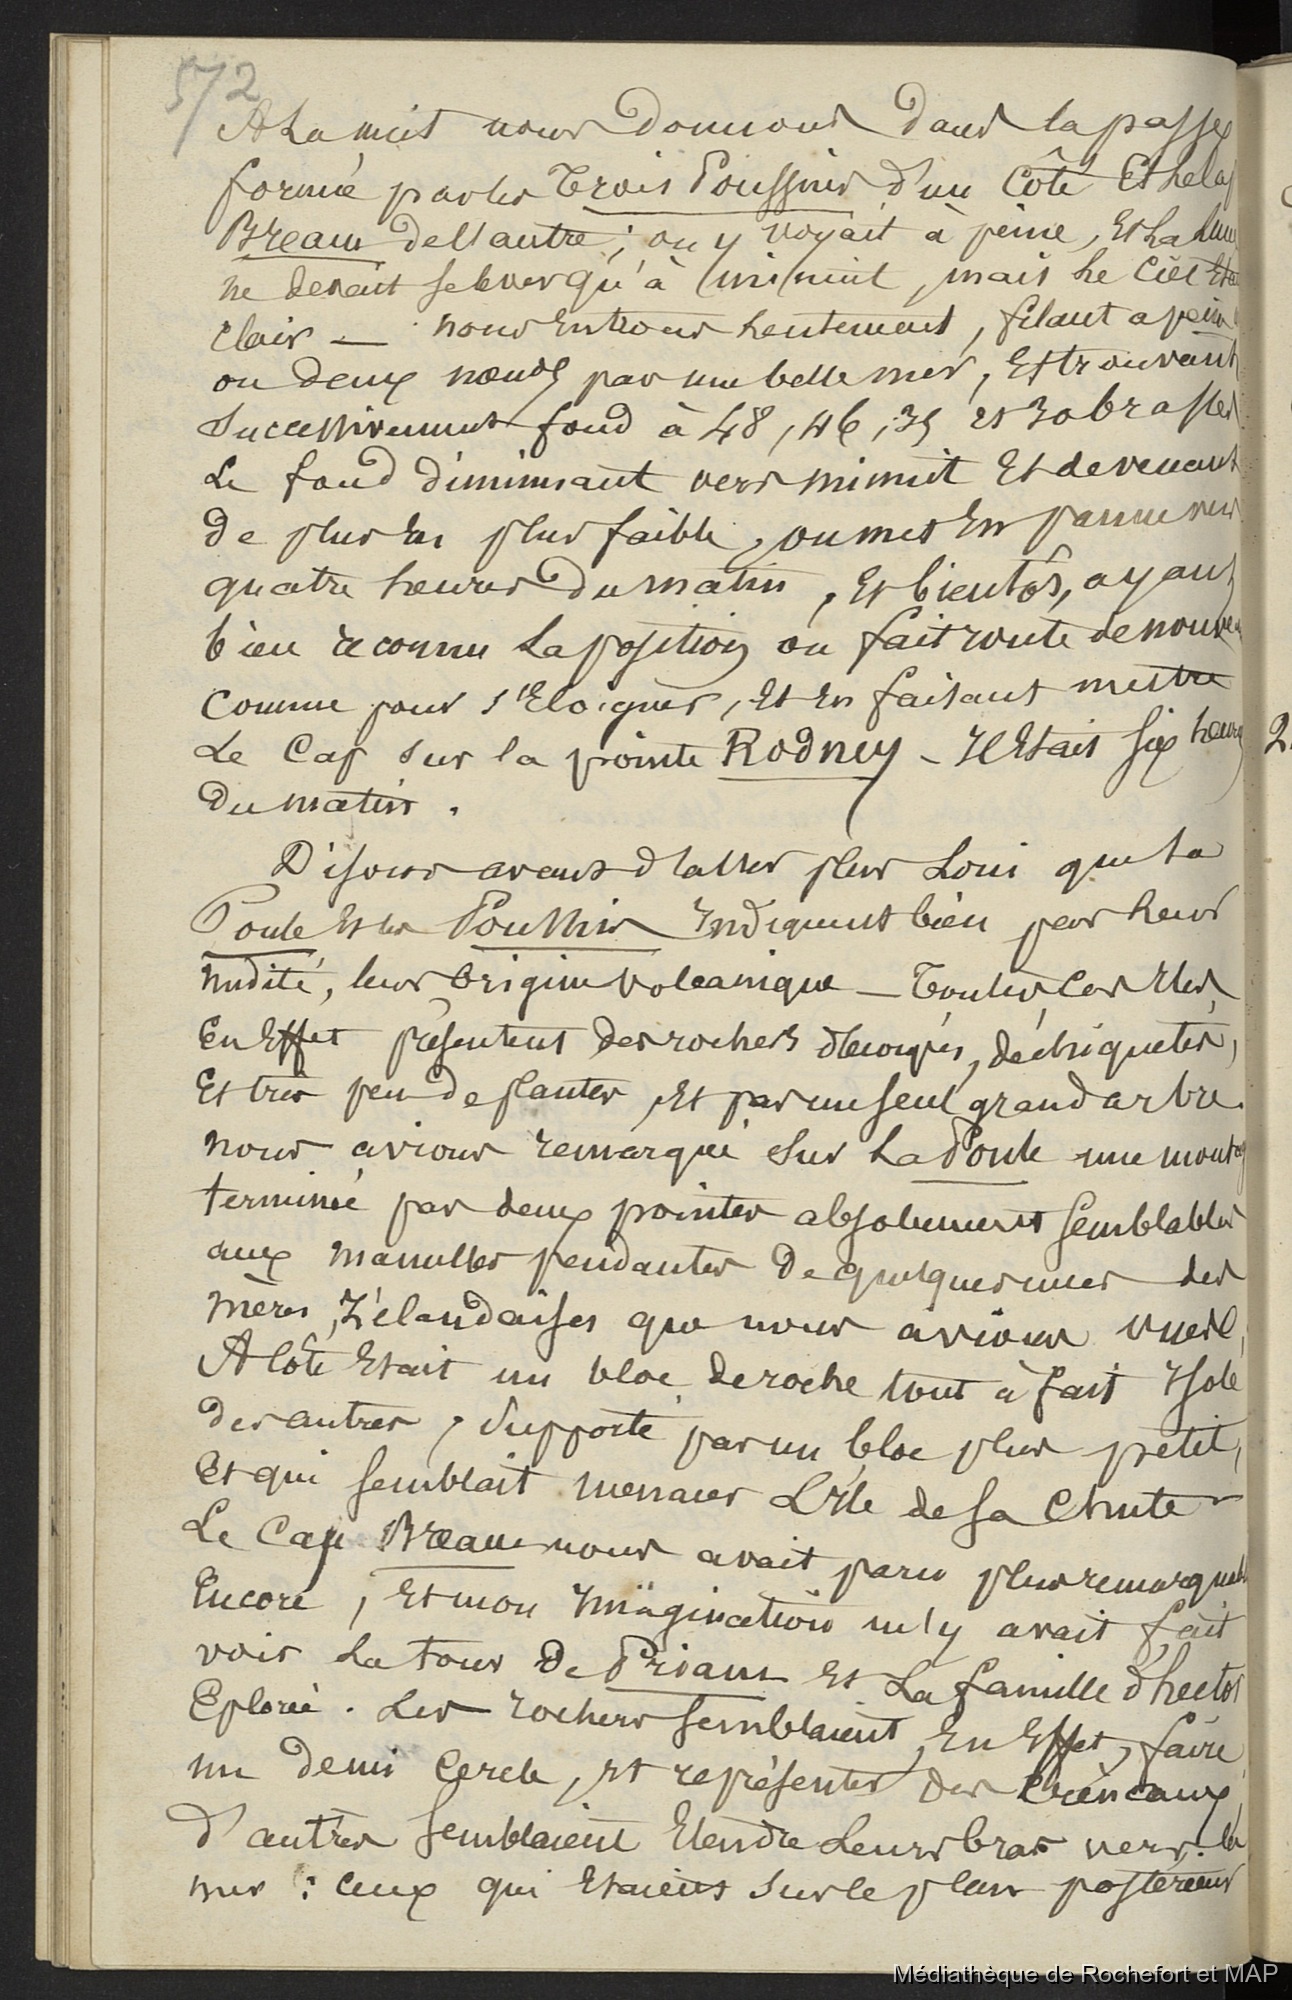 572
A La nuit nous donnons dans la passe
formée par les Trois Poussins d'un Côté Et le Cap
Bream de l'autre ; on y voyait à peine, Et La Lune
ne devait se lever qu'à minuit, mais Le Ciel Etait
clair — nous Entrons Lentement, filant a peine
ou deux nœuds par une belle mer, Et trouvant
Successivement fond à 48, 46, 35 et 30 brasses
Le fond diminuant vers minuit Et devenant
de plus En plus faible, on met En panne vers
quatre heures du matin, Et bientôt, ayant
bien reconnu La position on fait route de nouveau
Comme pour s'Eloigner, Et En faisant mettre
Le Cap sur la pointe Rodney — Il Etait six heures
du matin.
Disons avant d'aller plus Loin que La
Poule Et les Poussins Indiquent bien par Leur
nudité, leur Origine Volcanique — Toutes Ces Iles,
En Effet présentent des rochers décharnés, déchiquetés,
Et très peu de plantes, Et pas un seul grand arbre.
nous avions remarqué sur La Poule une montagne
terminée par deux pointes absolument Semblables
aux mamelles pendantes de quelques unes des
mères Zélandaises que nous avions vues,
A Côté Etait un bloc de roche tout à fait Isolé
des autres, Supporté par un bloc plus petit,
Et qui Semblait menacer L'Ile de sa Chute
Le Cap Bream nous avait paru plus remarquable
Encore, Et mon Imagination m'y avait fait
voir La tour de Priam Et La famille d'hector
Eplorée. Les rochers semblaient, En Effet, faire
un demi Cercle, Et représenter des Créneaux,
d'autres Semblaient Etendre Leurs bras vers la
mer : Ceux qui Etaient Sur le plan postérieur
2
Médiathèque de Rochefort et MAP